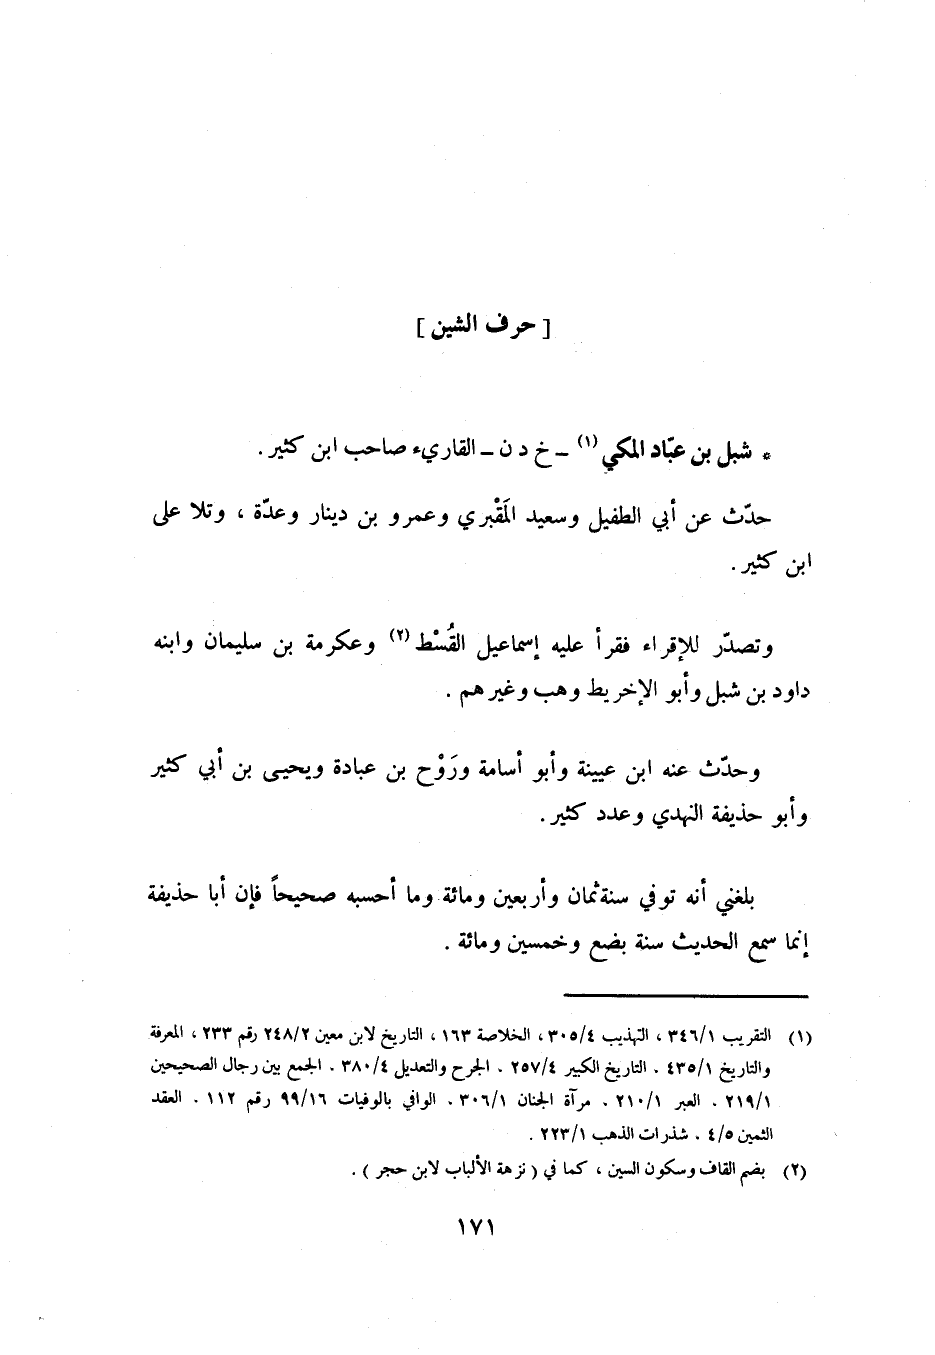 [ حرف الشين ]
* شبل بن عبّاد المكي (١) ـ خ د ن ـ القاريء صاحب ابن كثير .
حدّث عن أبي الطفيل وسعيد المَقْبري وعمرو بن دينار وعدّة ، وتلا على
ابن كثير .
وتصدّر للإقراء فقرأ عليه إسماعيل القُسْط (٢) وعكرمة بن سليمان وابنه
داود بن شبل وأبو الإخريط وهب وغيرهم .
وحدّث عنه ابن عيينة وأبو أسامة ورَوْح بن عبادة ويحيى بن أبي كثير
وأبو حذيفة النهدي وعدد كثير .
بلغني أنه توفي سنة ثمان وأربعين ومائة وما أحسبه صحيحاً فإن أبا حذيفة
إنما سمع الحديث سنة بضع وخمسين ومائة .
(١) التقريب ٣٤٦/١ ، التهذيب ٣٠٥/٤ ، الخلاصة ١٦٣ ، التاريخ لابن معين ٢٤٨/٢ رقم ٢٣٣ ، المعرفة
والتاريخ ٤٣٥/١ . التاريخ الكبير ٢٥٧/٤ . الجرح والتعديل ٣٨٠/٤ . الجمع بين رجال الصحيحين
٢١٩/١ . العبر ٢١٠/١ . مرآة الجنان ٣٠٦/١ . الوافي بالوفيات ٩٩/١٦ رقم ١١٢ . العقد
الثمين ٤/٥ . شذرات الذهب ٢٢٣/١ .
(٢) بضم القاف وسكون السين ، كما في ( نزهة الألباب لابن حجر ) .
١٧١